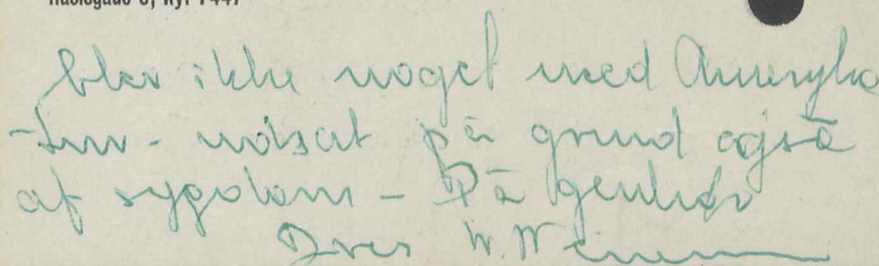 blev ikke noget med Ameryka
- tur - udsat på grund også
af sygdom - På genhør
Deres W. W